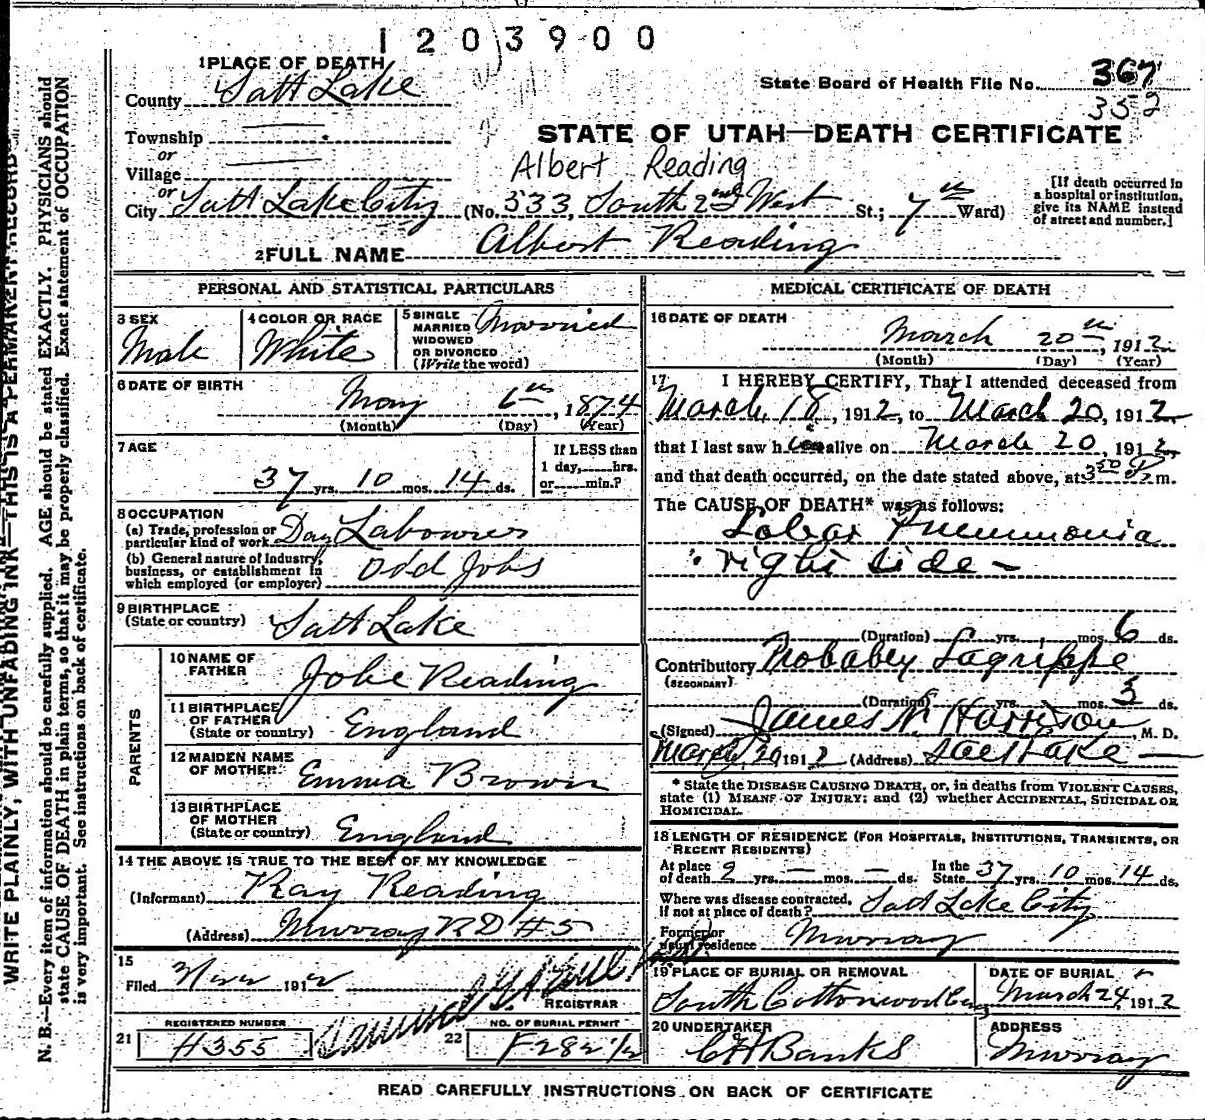 1203900
1 PLACE OF DEATH
County Salt Lake
State Board of Health File No. 367
352
Township
or
Village
or
STATE OF UTAH—DEATH CERTIFICATE
Albert Reading
City Salt Lake City (No. 333, South 2nd West St.; 7th Ward)
[If death occurred in
a hospital or institution,
give its NAME instead
of street and number.]
2 FULL NAME Albert Reading
PERSONAL AND STATISTICAL PARTICULARS
3 SEX
Male
4 COLOR OR RACE
White
5 SINGLE
MARRIED
WIDOWED
OR DIVORCED
(Write the word)
Married
6 DATE OF BIRTH
May 6th, 1874
(Month) (Day) (Year)
7 AGE
37 yrs. 10 mos. 14 ds.
If LESS than
1 day, hrs.
or min.?
8 OCCUPATION
(a) Trade, profession or
particular kind of work Day Labourer
(b) General nature of Industry,
business, or establishment in
which employed (or employer) Odd Jobs
9 BIRTHPLACE
(State or country) Salt Lake
PARENTS
10 NAME OF
FATHER Reading
11 BIRTHPLACE
OF FATHER
(State or country) England
12 MAIDEN NAME
OF MOTHER Emma Brown
13 BIRTHPLACE
OF MOTHER
(State or country) England
14 THE ABOVE IS TRUE TO THE BEST OF MY KNOWLEDGE
(Informant) Ray Reading
(Address) Murray RD #5
15
Filed 1912
REGISTRAR
REGISTERED NUMBER
21 H355
NO. OF BURIAL PERMIT
22 F282½
MEDICAL CERTIFICATE OF DEATH
16 DATE OF DEATH
March 20th, 1912
(Month) (Day) (Year)
17 I HEREBY CERTIFY, That I attended deceased from
March 18, 1912, to March 20, 1912
that I last saw him alive on March 20, 1912
and that death occurred, on the date stated above, at 3 50 P m.
The CAUSE OF DEATH* was as follows:
Lobar Pneumonia
right side —
(Duration) yrs. mos. 6 ds.
Contributory Probabley Lagrippe
(SECONDARY)
(Duration) yrs. mos. 3 ds.
(Signed) James N. Harrison, M. D.
March 20 1912 (Address) Salt Lake
* State the DISEASE CAUSING DEATH, or, in deaths from VIOLENT CAUSES,
state (1) MEANS OF INJURY; and (2) whether ACCIDENTAL, SUICIDAL OR
HOMICIDAL.
18 LENGTH OF RESIDENCE (FOR HOSPITALS, INSTITUTIONS, TRANSIENTS, OR
RECENT RESIDENTS)
At place
of death 9 yrs. — mos. — ds.
In the
State 37 yrs. 10 mos. 14 ds.
Where was disease contracted,
if not at place of death? Salt Lake City
Former or
usual residence Murray
19 PLACE OF BURIAL OR REMOVAL
South Cottonwood Cem
DATE OF BURIAL
March 24, 1912
20 UNDERTAKER
C H Banks
ADDRESS
Murray
READ CAREFULLY INSTRUCTIONS ON BACK OF CERTIFICATE
WRITE PLAINLY, WITH UNFADING INK—THIS IS A PERMANENT RECORD
N. B.—Every item of information should be carefully supplied. AGE should be stated EXACTLY. PHYSICIANS should
state CAUSE OF DEATH in plain terms, so that it may be properly classified. Exact statement of OCCUPATION
is very important. See instructions on back of certificate.